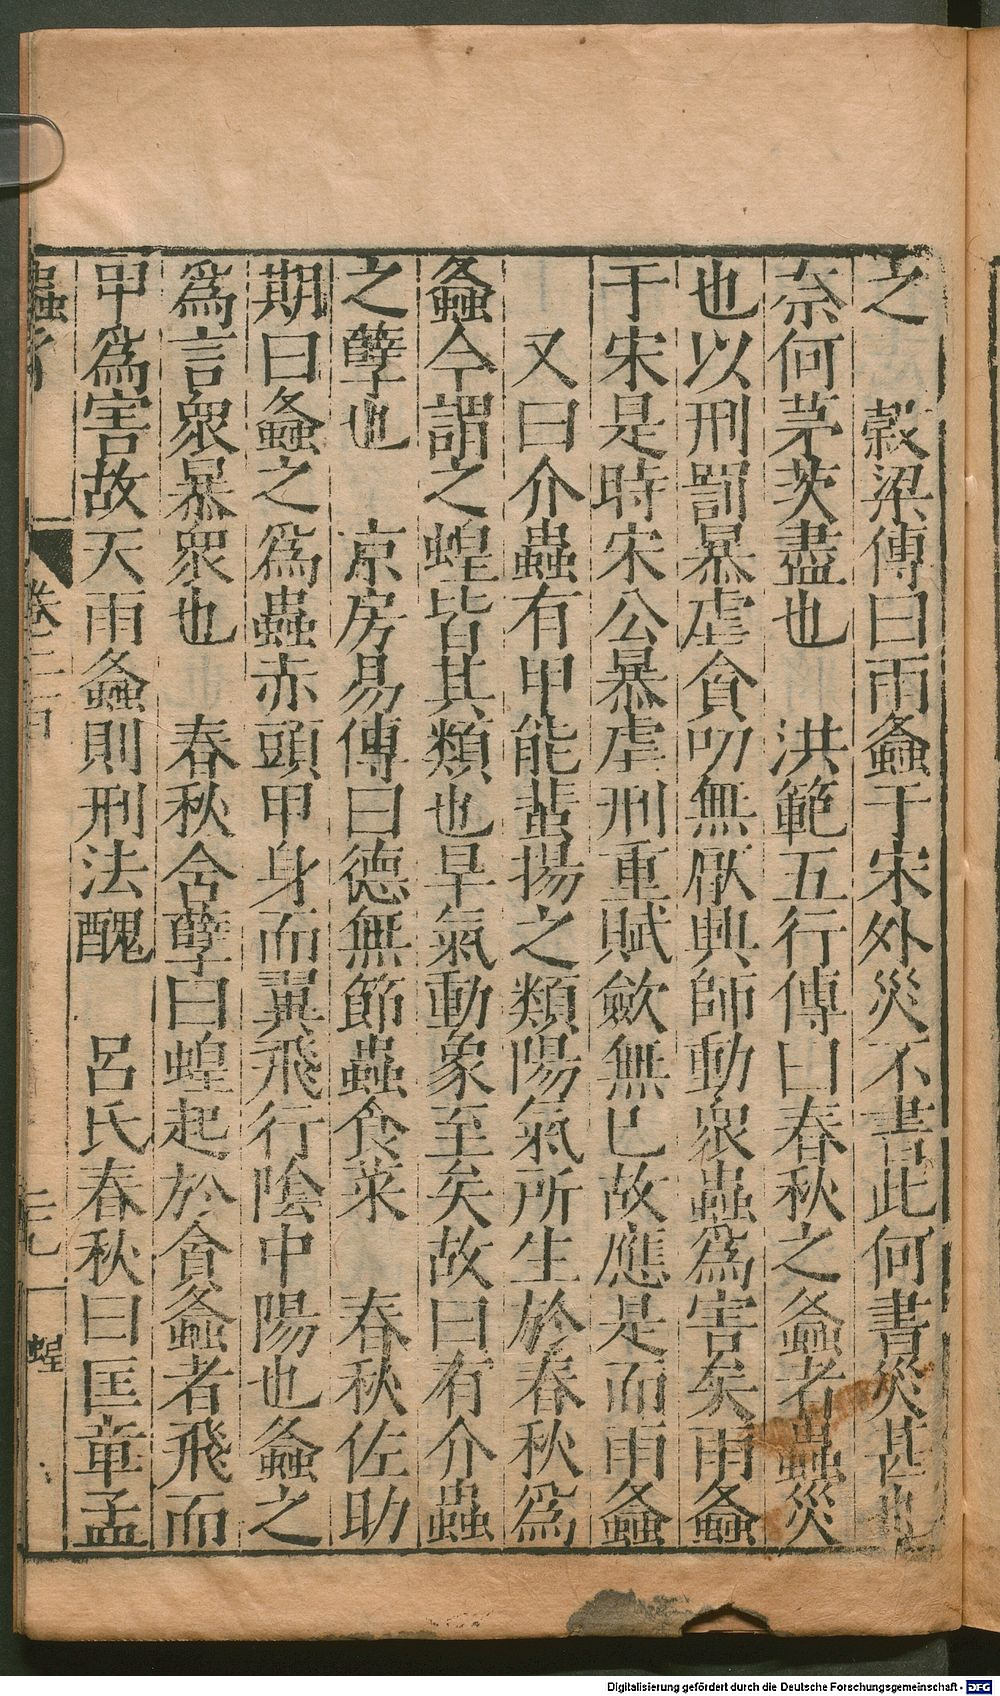 之　穀梁傳曰雨螽于宋外災不書此何書災甚也
奈何茅茨盡也　洪範五行傳曰春秋之螽者蟲災
也以刑罰暴虐貪叨無厭興師動衆蟲爲害矣雨螽
于宋是時宋公暴虐刑重賦斂無已故應是而雨螽
又曰介蟲有甲能蜚揚之類陽氣所生於春秋爲
螽今謂之蝗皆其類也旱氣動象至矣故曰有介蟲
之孽也　京房易傳曰德無節蟲食菜　春秋佐助
期曰螽之爲蟲赤頭甲身而翼飛行陰中陽也螽之
爲言衆暴衆也　春秋含孽曰蝗起於貪螽者飛而
甲爲害故天雨螽則刑法醜　呂氏春秋曰匡章孟
卷三百
蝗
Digitalisierung gefördert durch die Deutsche Forschungsgemeinschaft - DFG